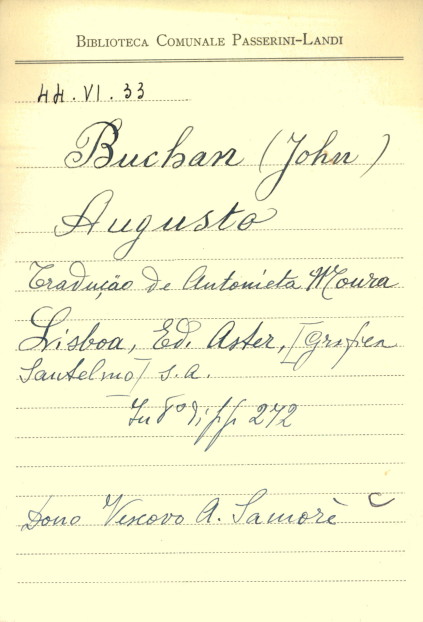 BIBLIOTECA COMUNALE PASSERINI-LANDI
44.VI.33
Buchan (John)
Augusto
Tradução de Antonieta Moura
Lisboa, Ed. Aster, [Grafica
Santelmo] s.a.
In 8° di pp. 272
Dono Vescovo A. Samorè